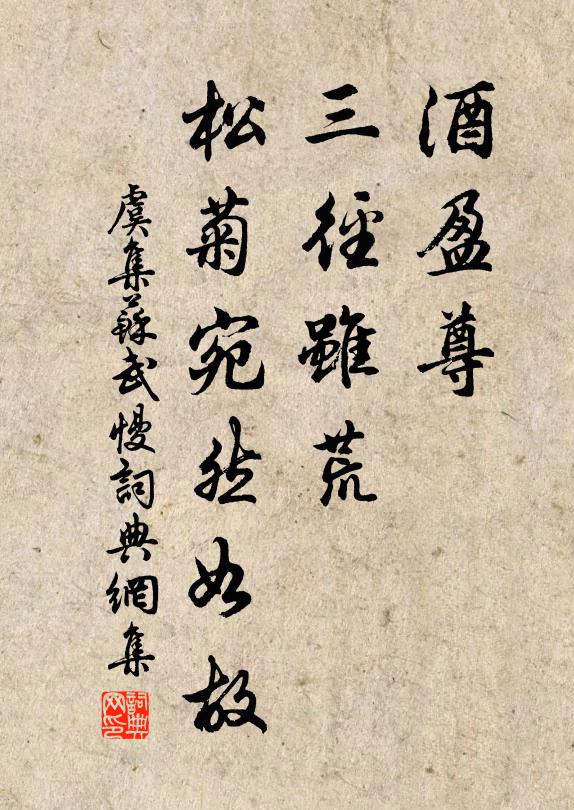 酒盈尊
三徑雖荒
松菊宛然如故
虞集蘇武慢詞典網集
詞典
网印